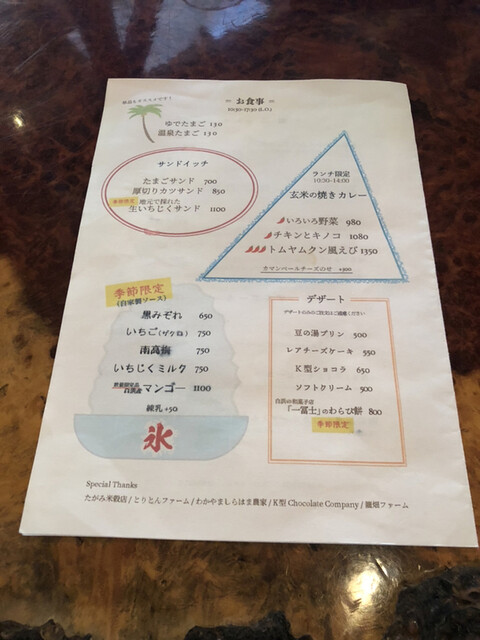 = お食事 =
10:30-17:30 (L.O.)
ゆでたまご 130
温泉たまご 130
サンドイッチ
たまごサンド 700
厚切りカツサンド 850
季節限定 地元で採れた
生いちじくサンド 1100
ランチ限定
10:30-14:00
玄米の焼きカレー
いろいろ野菜 980
チキンとキノコ 1080
トムヤムクン風えび 1350
カマンベールチーズのせ +300
季節限定
(自家製ソース)
黒みぞれ 650
いちご(ザクね) 750
南高梅 750
いちじくミルク 750
白浜産マンゴー 1100
練乳 +50
氷
デザート
デザートのみのご注文はご遠慮ください
豆の湯プリン 500
レアチーズケーキ 550
K型ショコラ 650
ソフトクリーム 500
白浜の和菓子店
「一冨士」のわらび餅 800
季節限定
Special Thanks
たがみ米穀店 / とりとんファーム / わかやましらはま農家 / K型 Chocolate Company / 籠畑ファーム